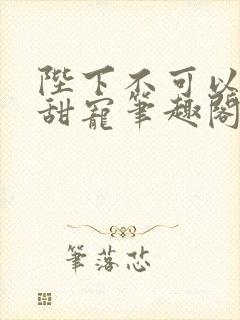 陛下不可以
甜寵筆趣閣
筆落芯